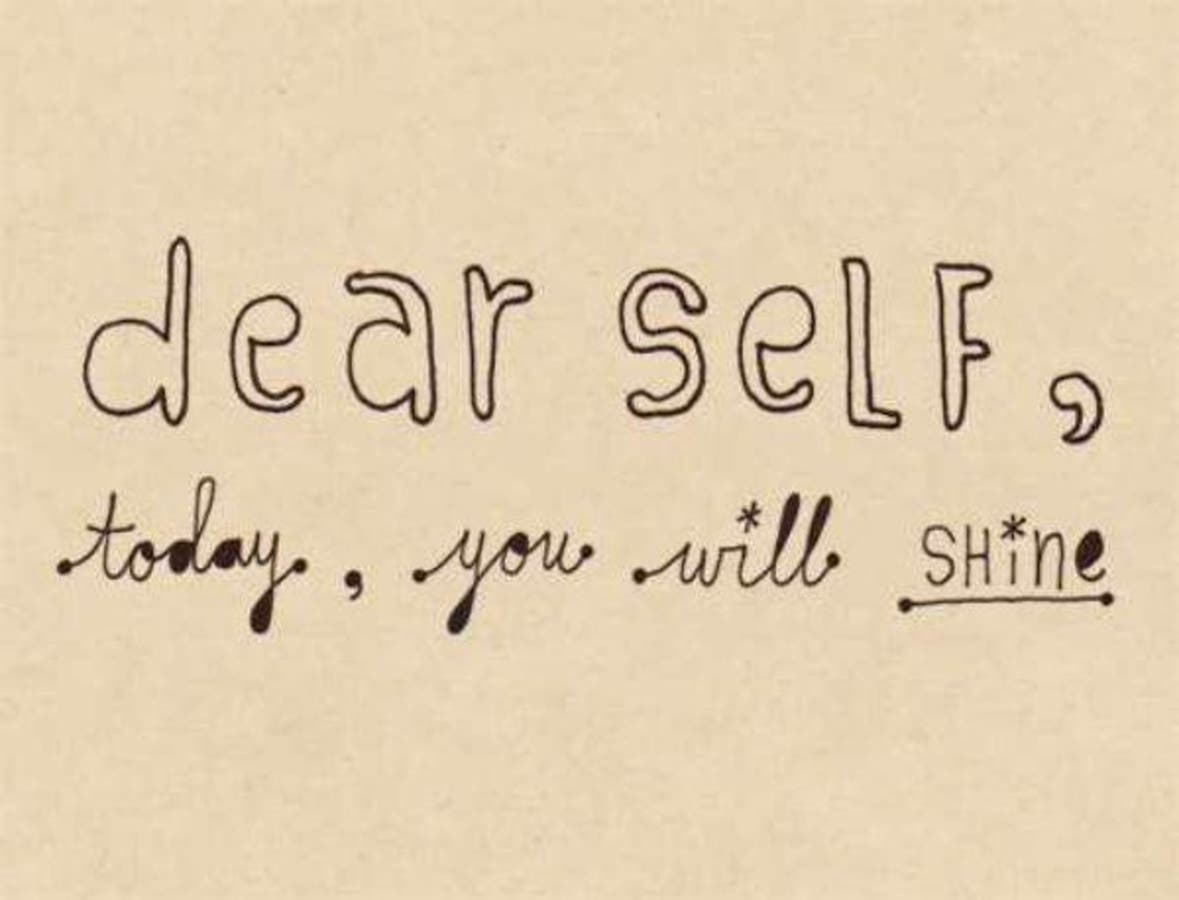 dear self,
today, you will SHine